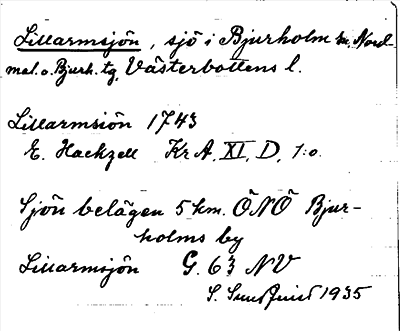 Lillarmsjön, sjö i Bjurholm sn. Nord-
mal. o. Bjurh. tg, Västerbottens l.
Lillarmsiön 1743
E. Hackzell Kr A, XI, D, 1:o.
Sjön belägen 5 km. ÖNÖ Bjur-
holms by
Lillarmsjön G. 63 NV
S. Sundquist 1935